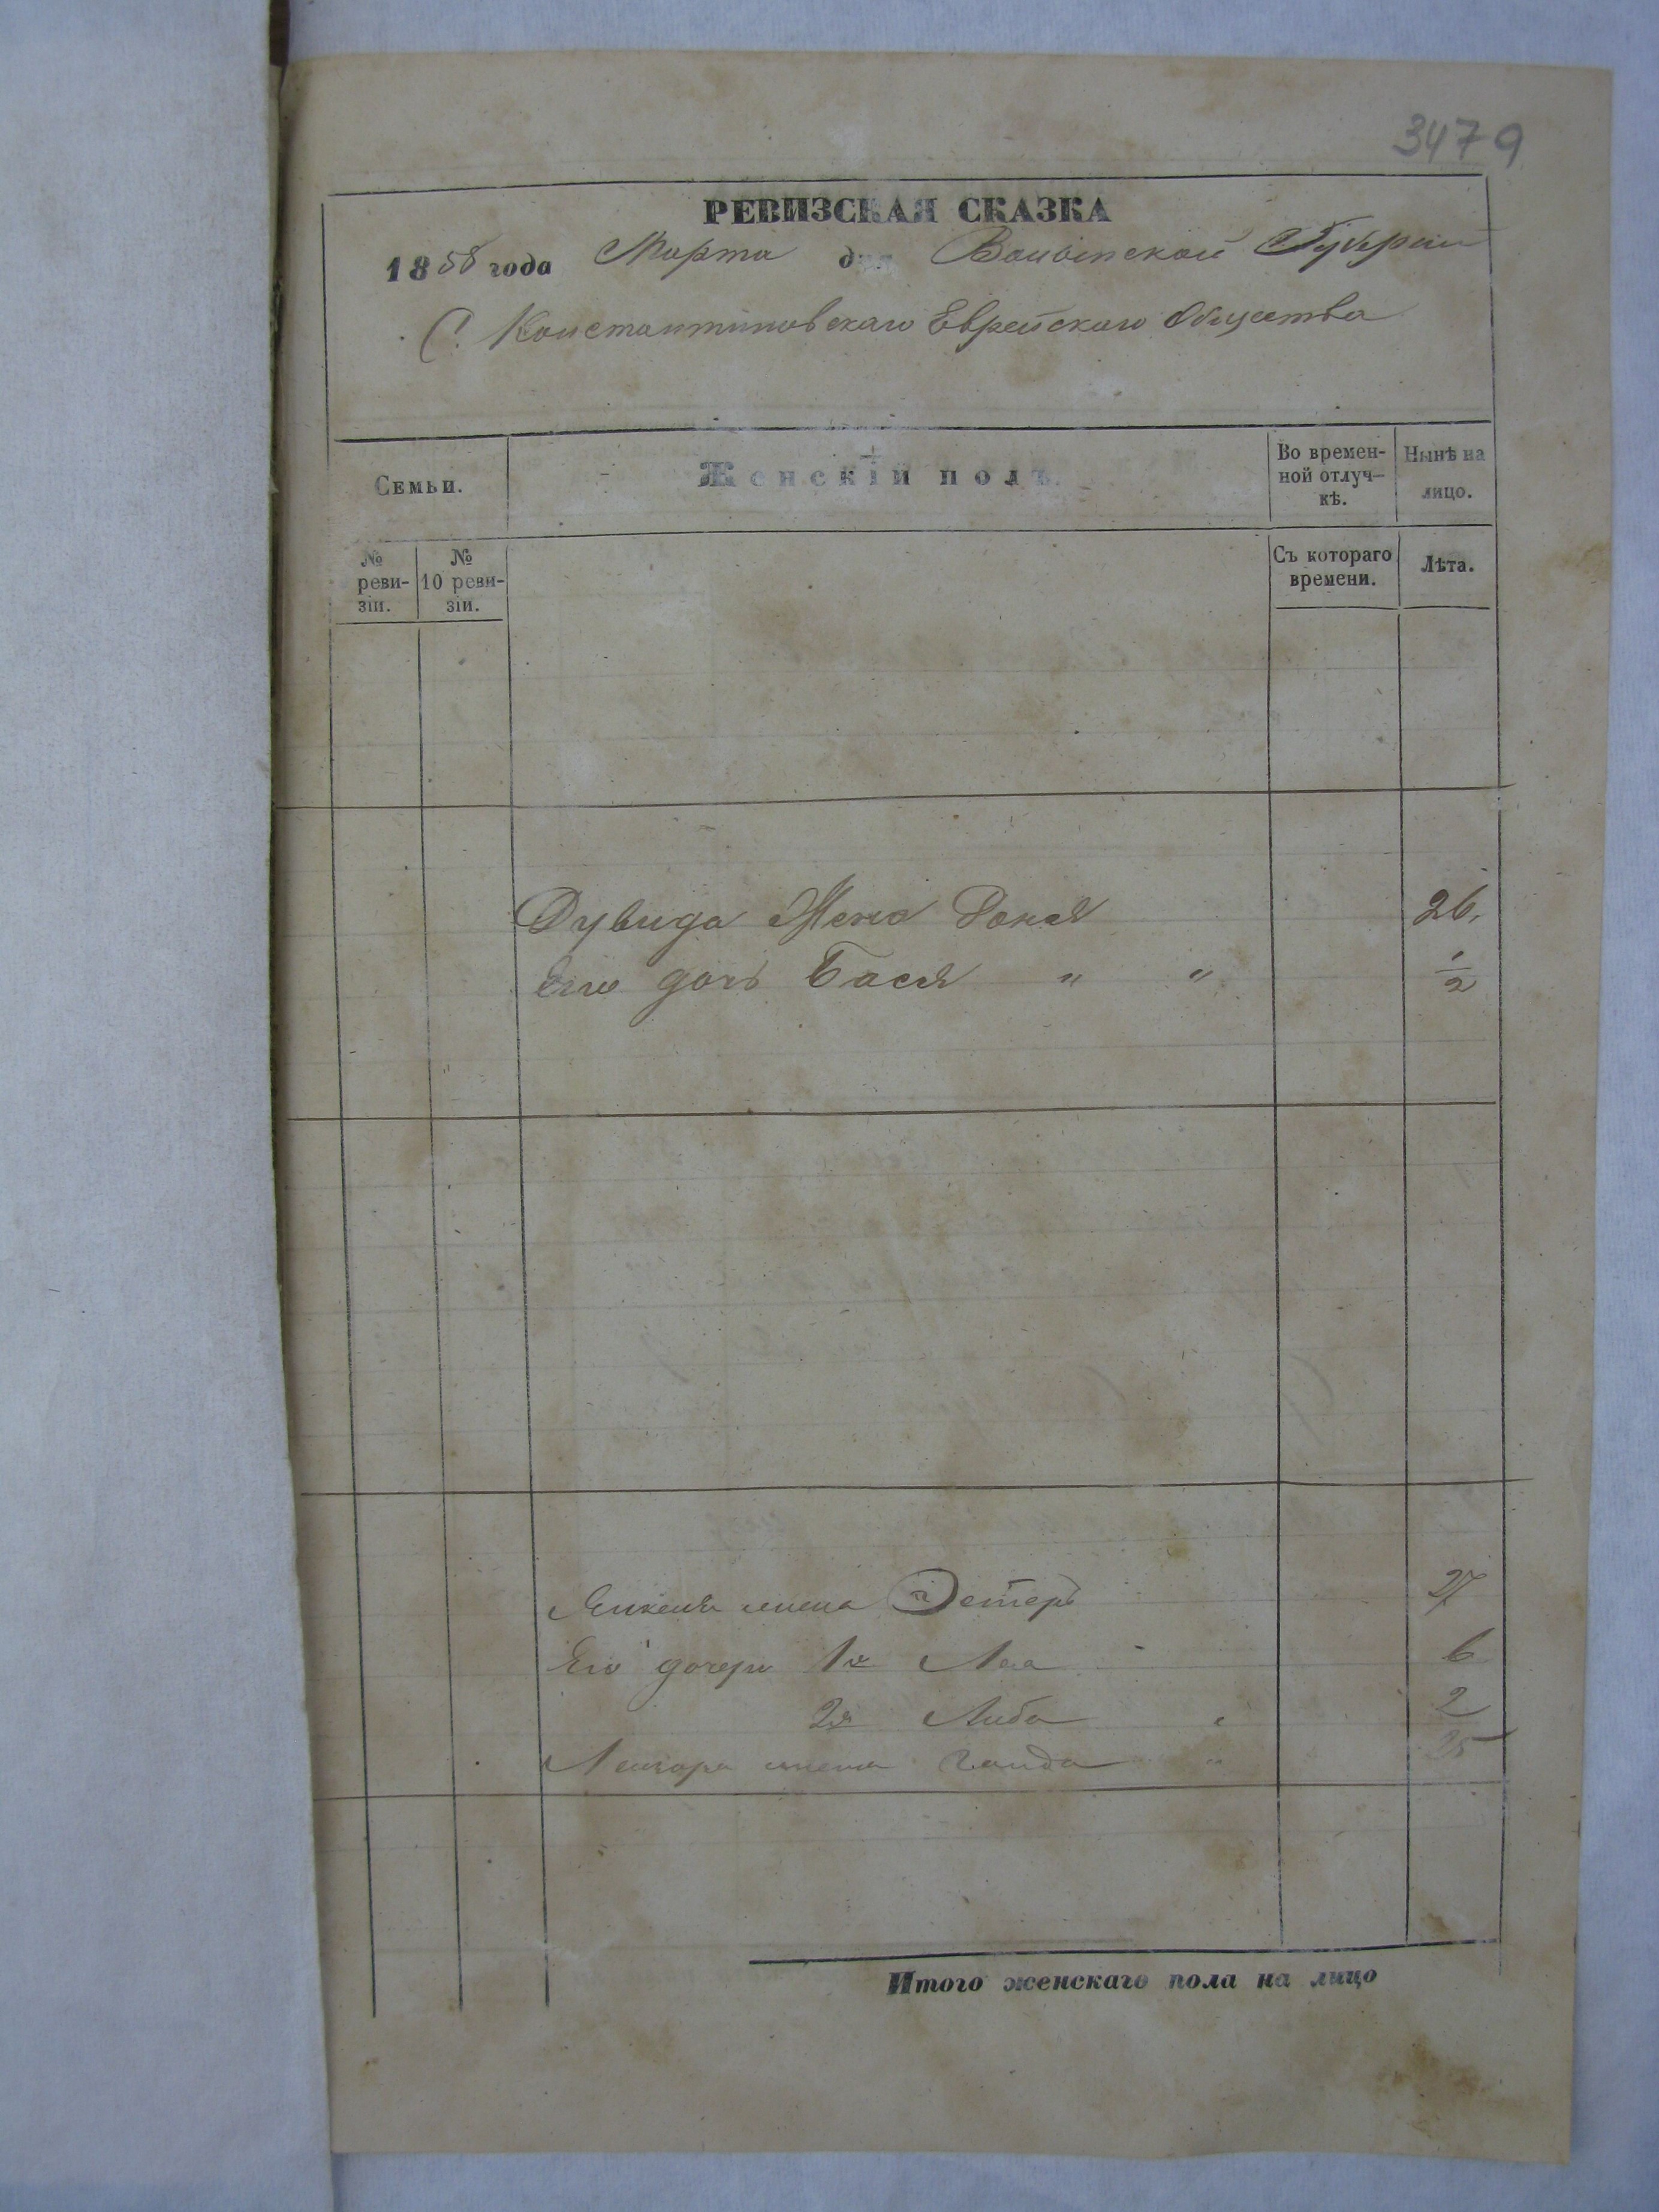 3479
РЕВИЗСКАЯ СКАЗКА
1858 года Марта дня Волынской Губернии
С. Константиновскаго Еврейскаго Общества
Семьи.
Женскій полъ.
Во времен-
ной отлуч-
кѣ.
Нынѣ на
лицо.
№
реви-
зіи.
№
10 реви-
зіи.
Съ котораго
времени.
Лѣта.
Дувида Жена 26.
Его дочь Бася " " 1/2
жена Эстеръ 27
Его дочери 1я Лея 6
2я Либа " 2
Лейзора жена " 25
Итого женскаго пола на лицо